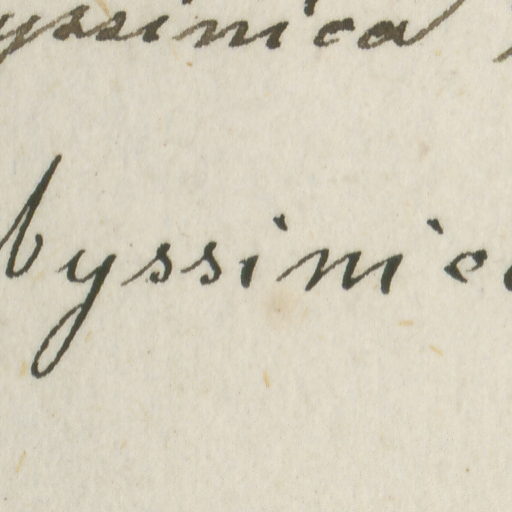 yssinica
byssinica